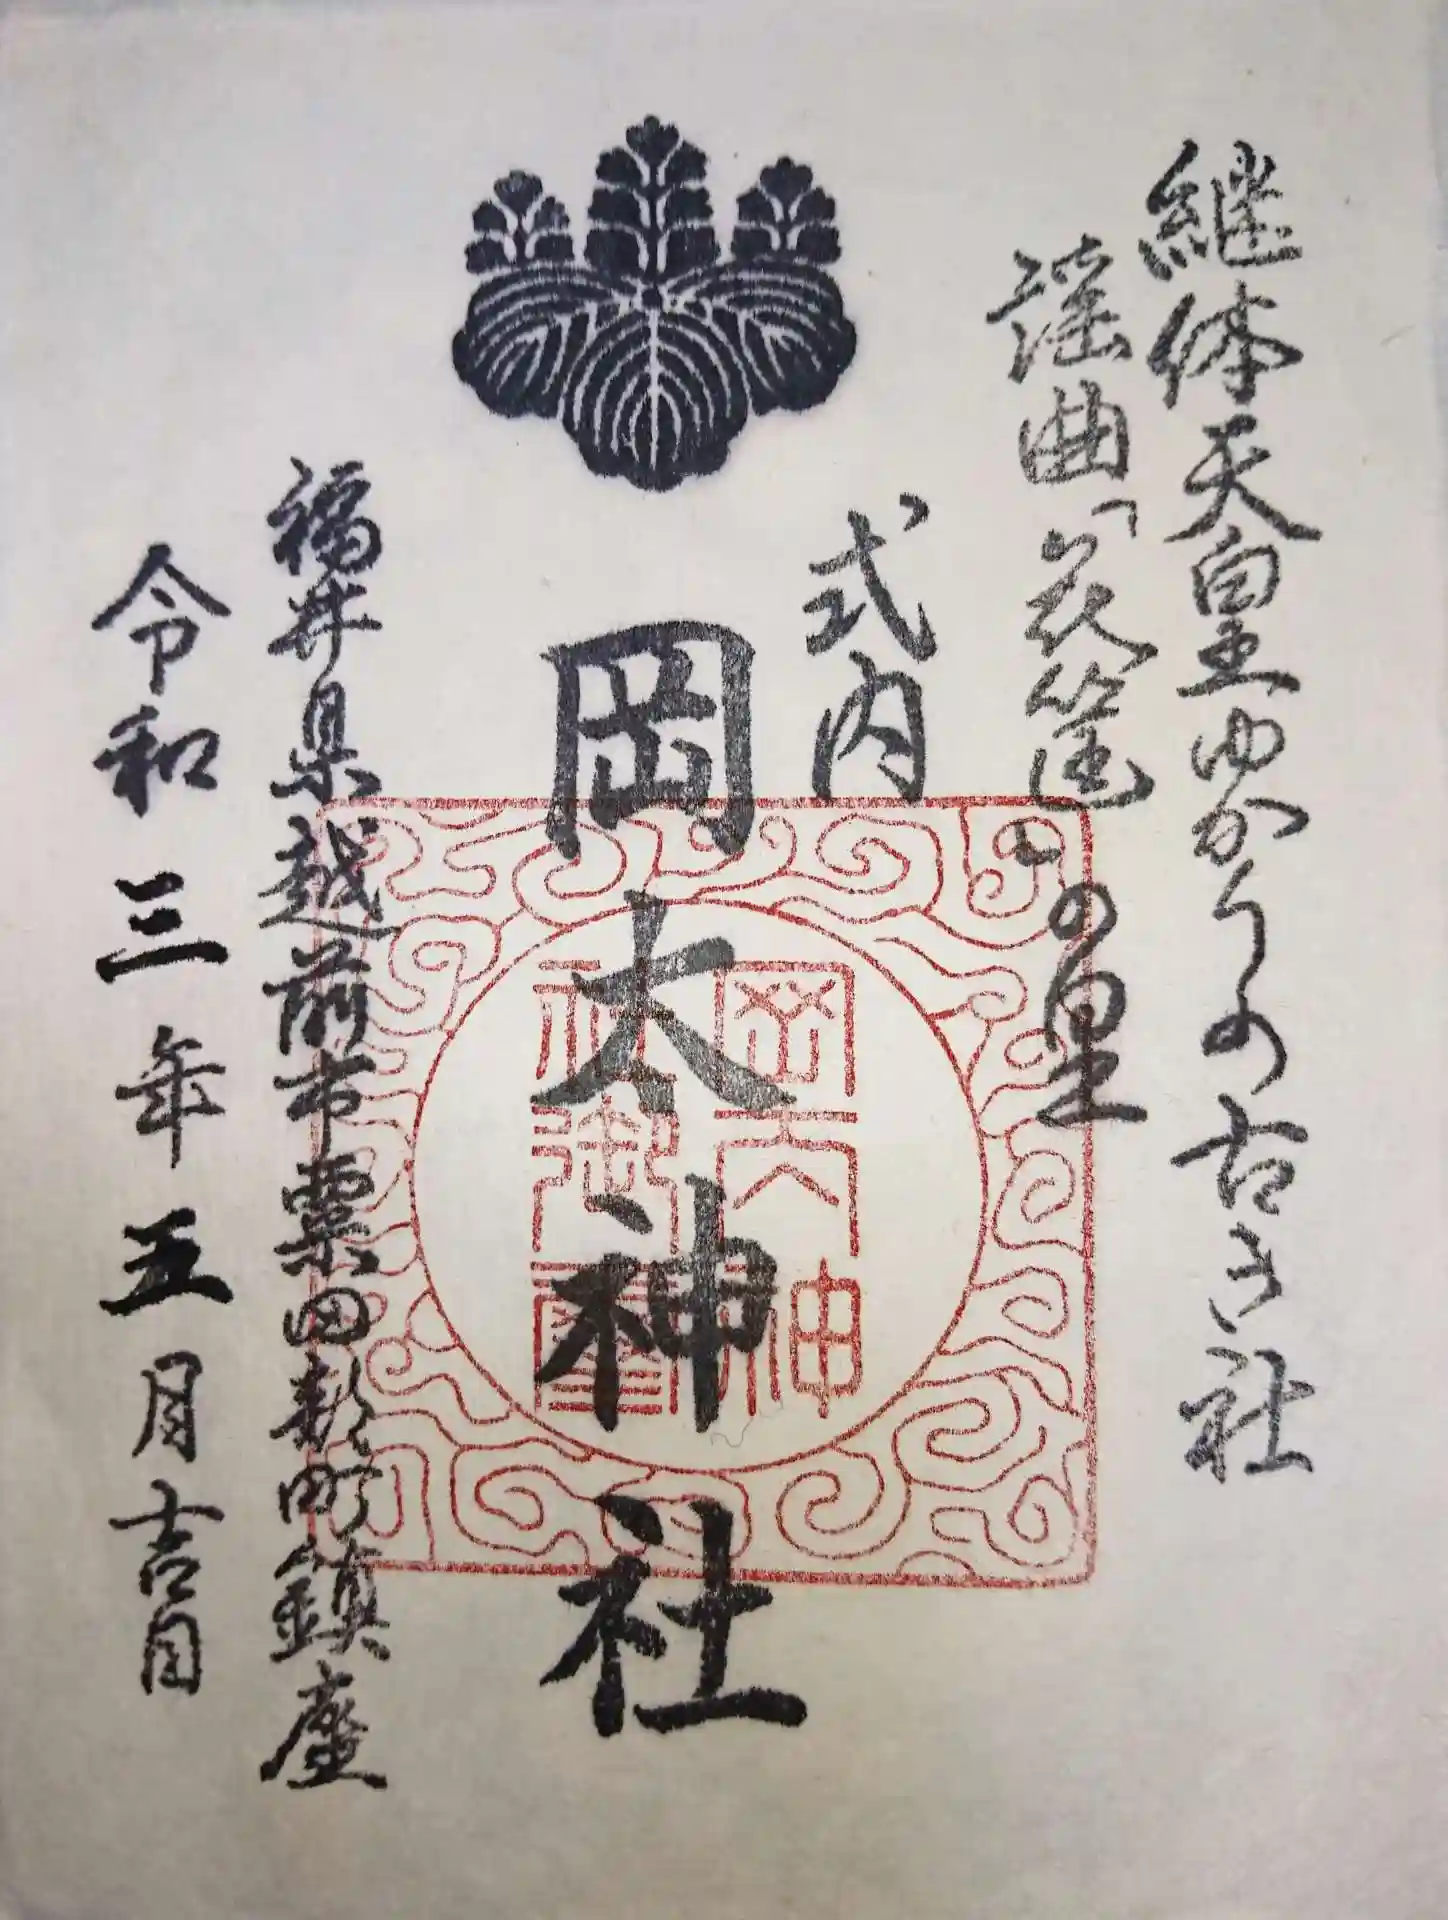 継体天皇ゆかりの古き社
謡曲「花筐」の里
式内
岡太神社
福井県越前市粟田部町鎮座
令和三年五月吉日
岡太神
社御璽